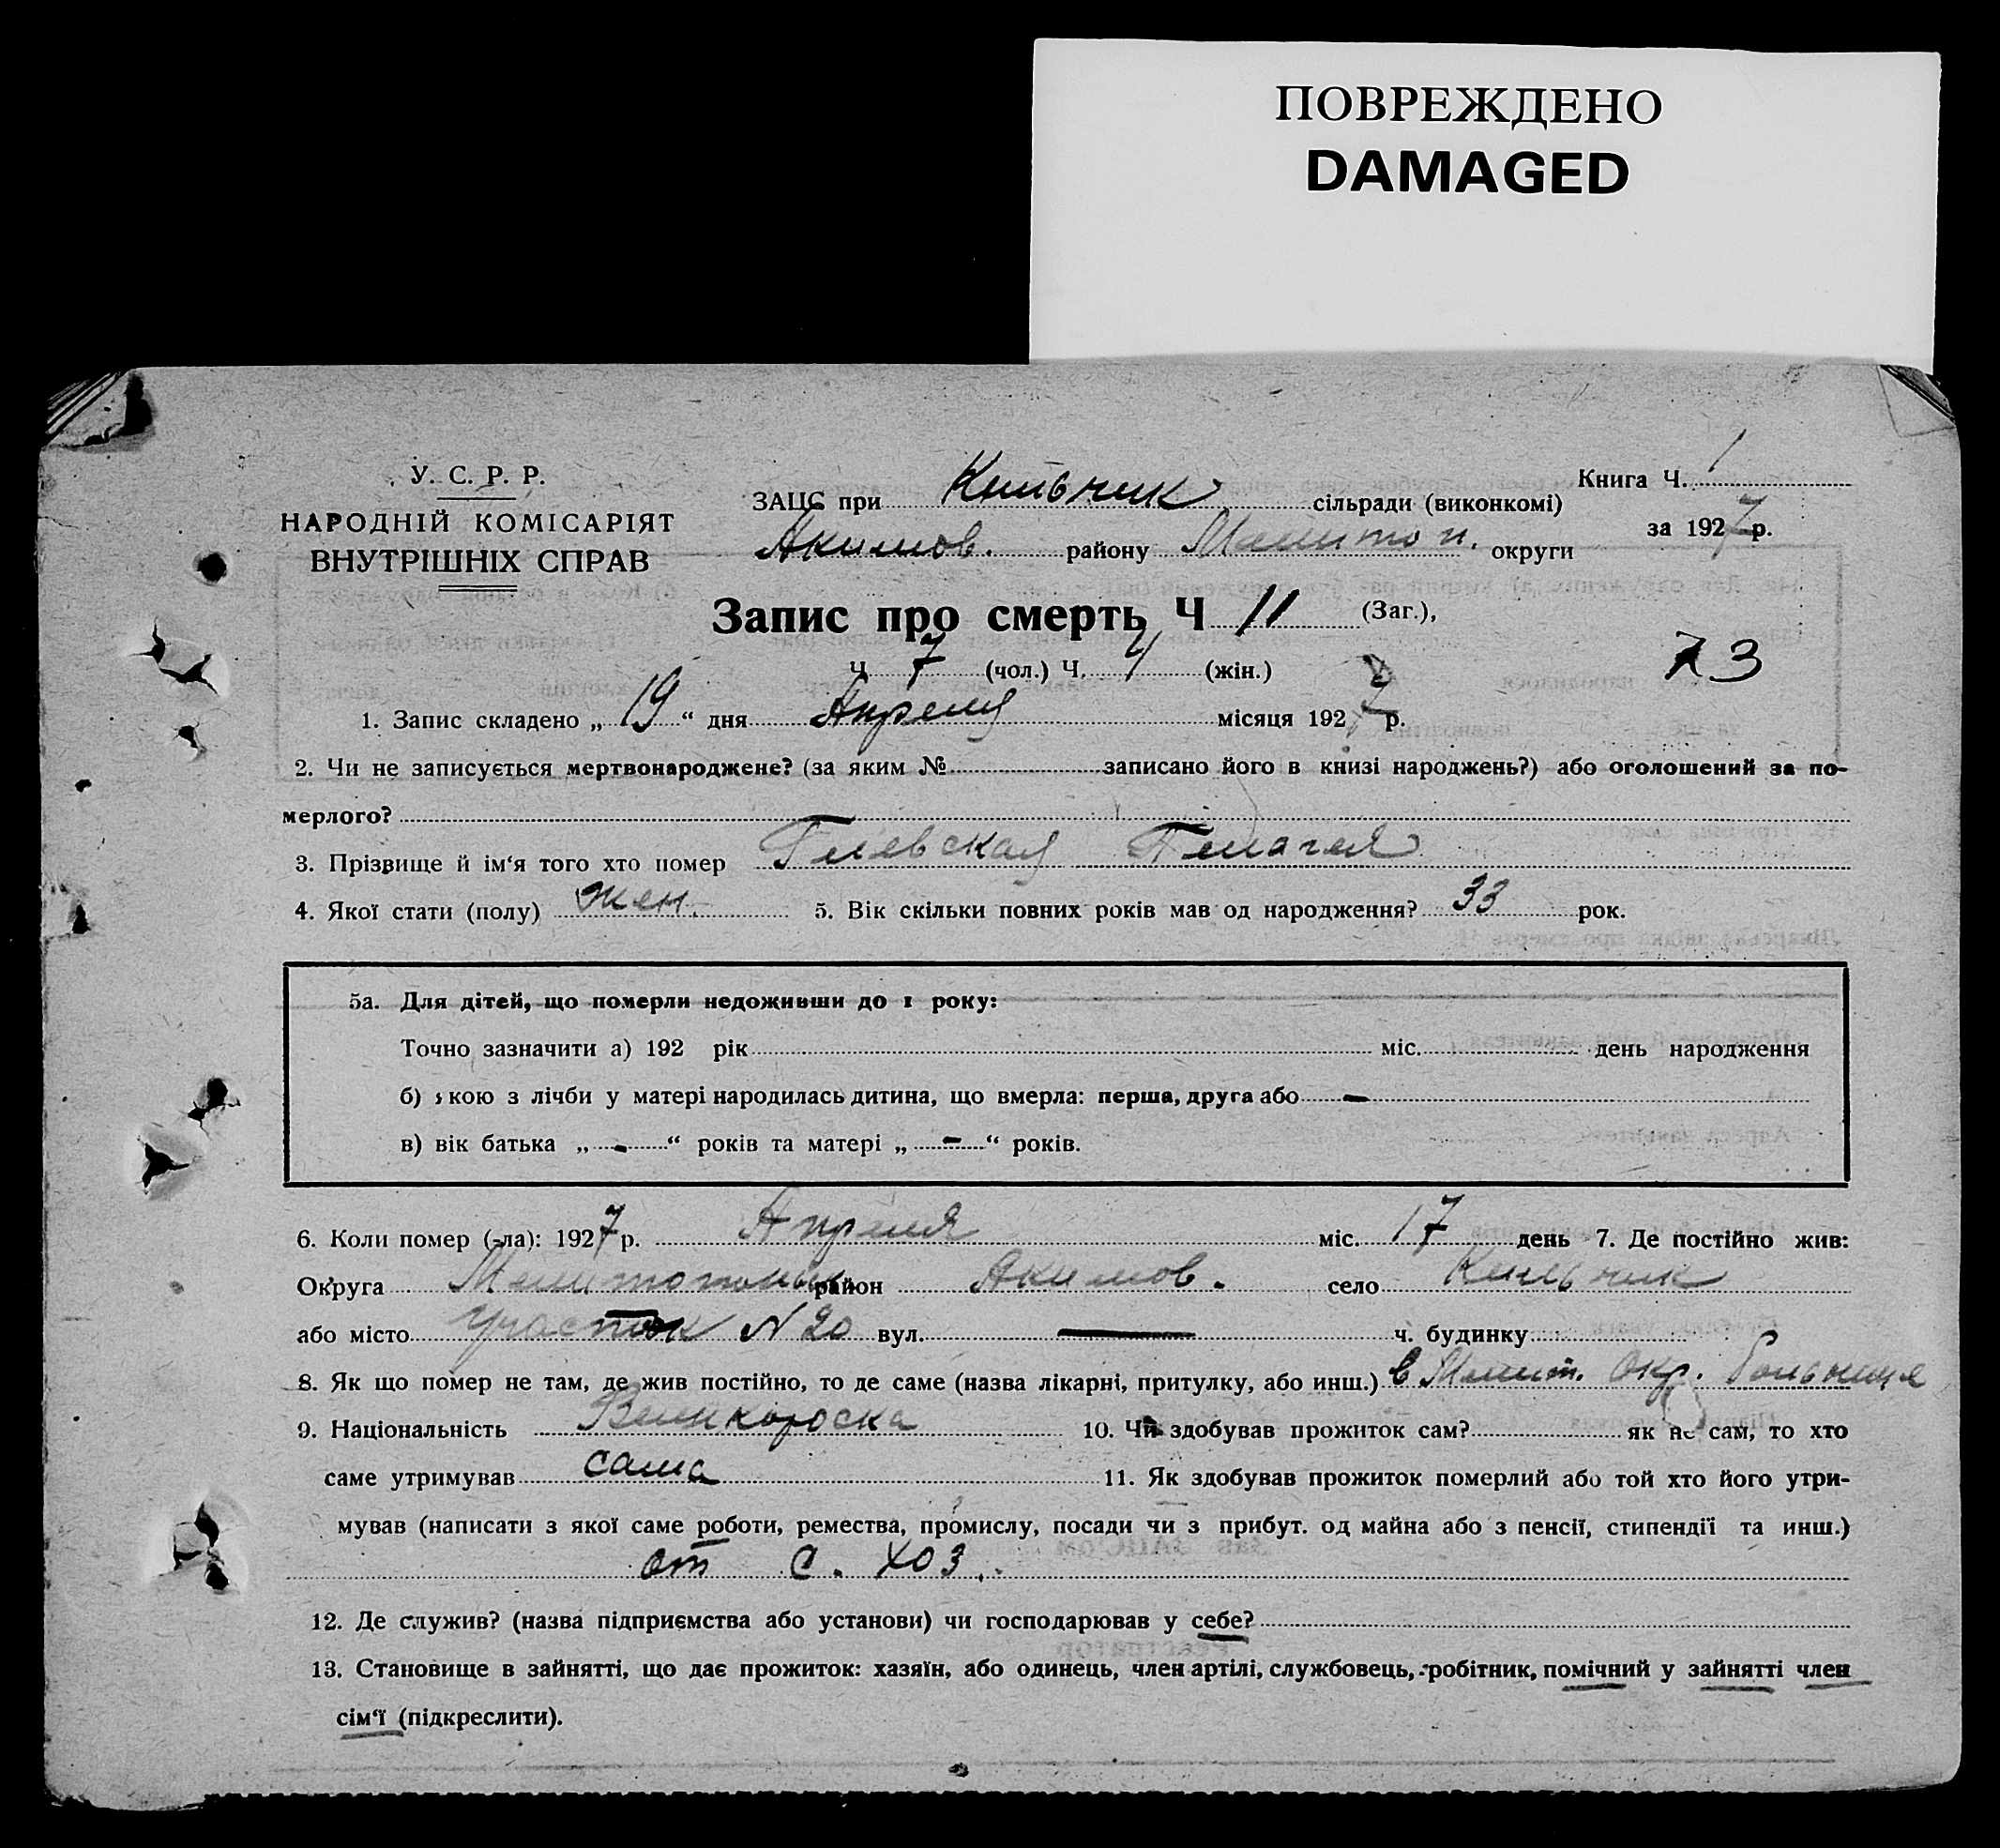 ПОВРЕЖДЕНО
DAMAGED
У. С. Р. Р.
НАРОДНІЙ КОМІСАРІЯТ
ВНУТРІШНІХ СПРАВ
ЗАЦС при Кильчик сільради (виконкомі)
Акимов. району Мелитоп. округи
Книга Ч. 1
за 1927 р.
Запис про смерть Ч 11 (Заг.),
Ч 7 (чол.) Ч. 4 (жін.)
73
1. Запис складено „ 19 “ дня Апреля місяця 1927 р.
2. Чи не записується мертвонароджене? (за яким № записано його в книзі народжень?) або оголошений за по-
мерлого?
3. Прізвище й ім‘я того хто помер Гилевская Пелагея
4. Якої стати (полу) жен. 5. Вік скільки повних років мав од народження? 33 рок.
5а. Для дітей, що померли недоживши до 1 року:
Точно зазначити а) 192 рік міс. день народження
б) якою з лічби у матері народилась дитина, що вмерла: перша, друга або —
в) вік батька „ - “ років та матері „ - “ років.
6. Коли помер (-ла): 1927 р. Апреля міс. 17 день 7. Де постійно жив:
Округа район Акимов. село Кильчик
або місто участок N 20 вул. — ч. будинку
8. Як що помер не там, де жив постійно, то де саме (назва лікарні, притулку, або инш.) в Мелит. Окр. больнице
9. Національність Великороска 10. Чи здобував прожиток сам? як не сам, то хто
саме утримував сама 11. Як здобував прожиток померлий або той хто його утри-
мував (написати з якої саме роботи, ремества, промислу, посади чи з прибут. од майна або з пенсії, стипендії та инш.)
от с. хоз.
12. Де служив? (назва підприємства або установи) чи господарював у себе?
13. Становище в зайнятті, що дає прожиток: хазяїн, або одинець, член артілі, службовець, робітник, помічний у зайнятті член
сім‘ї (підкреслити).